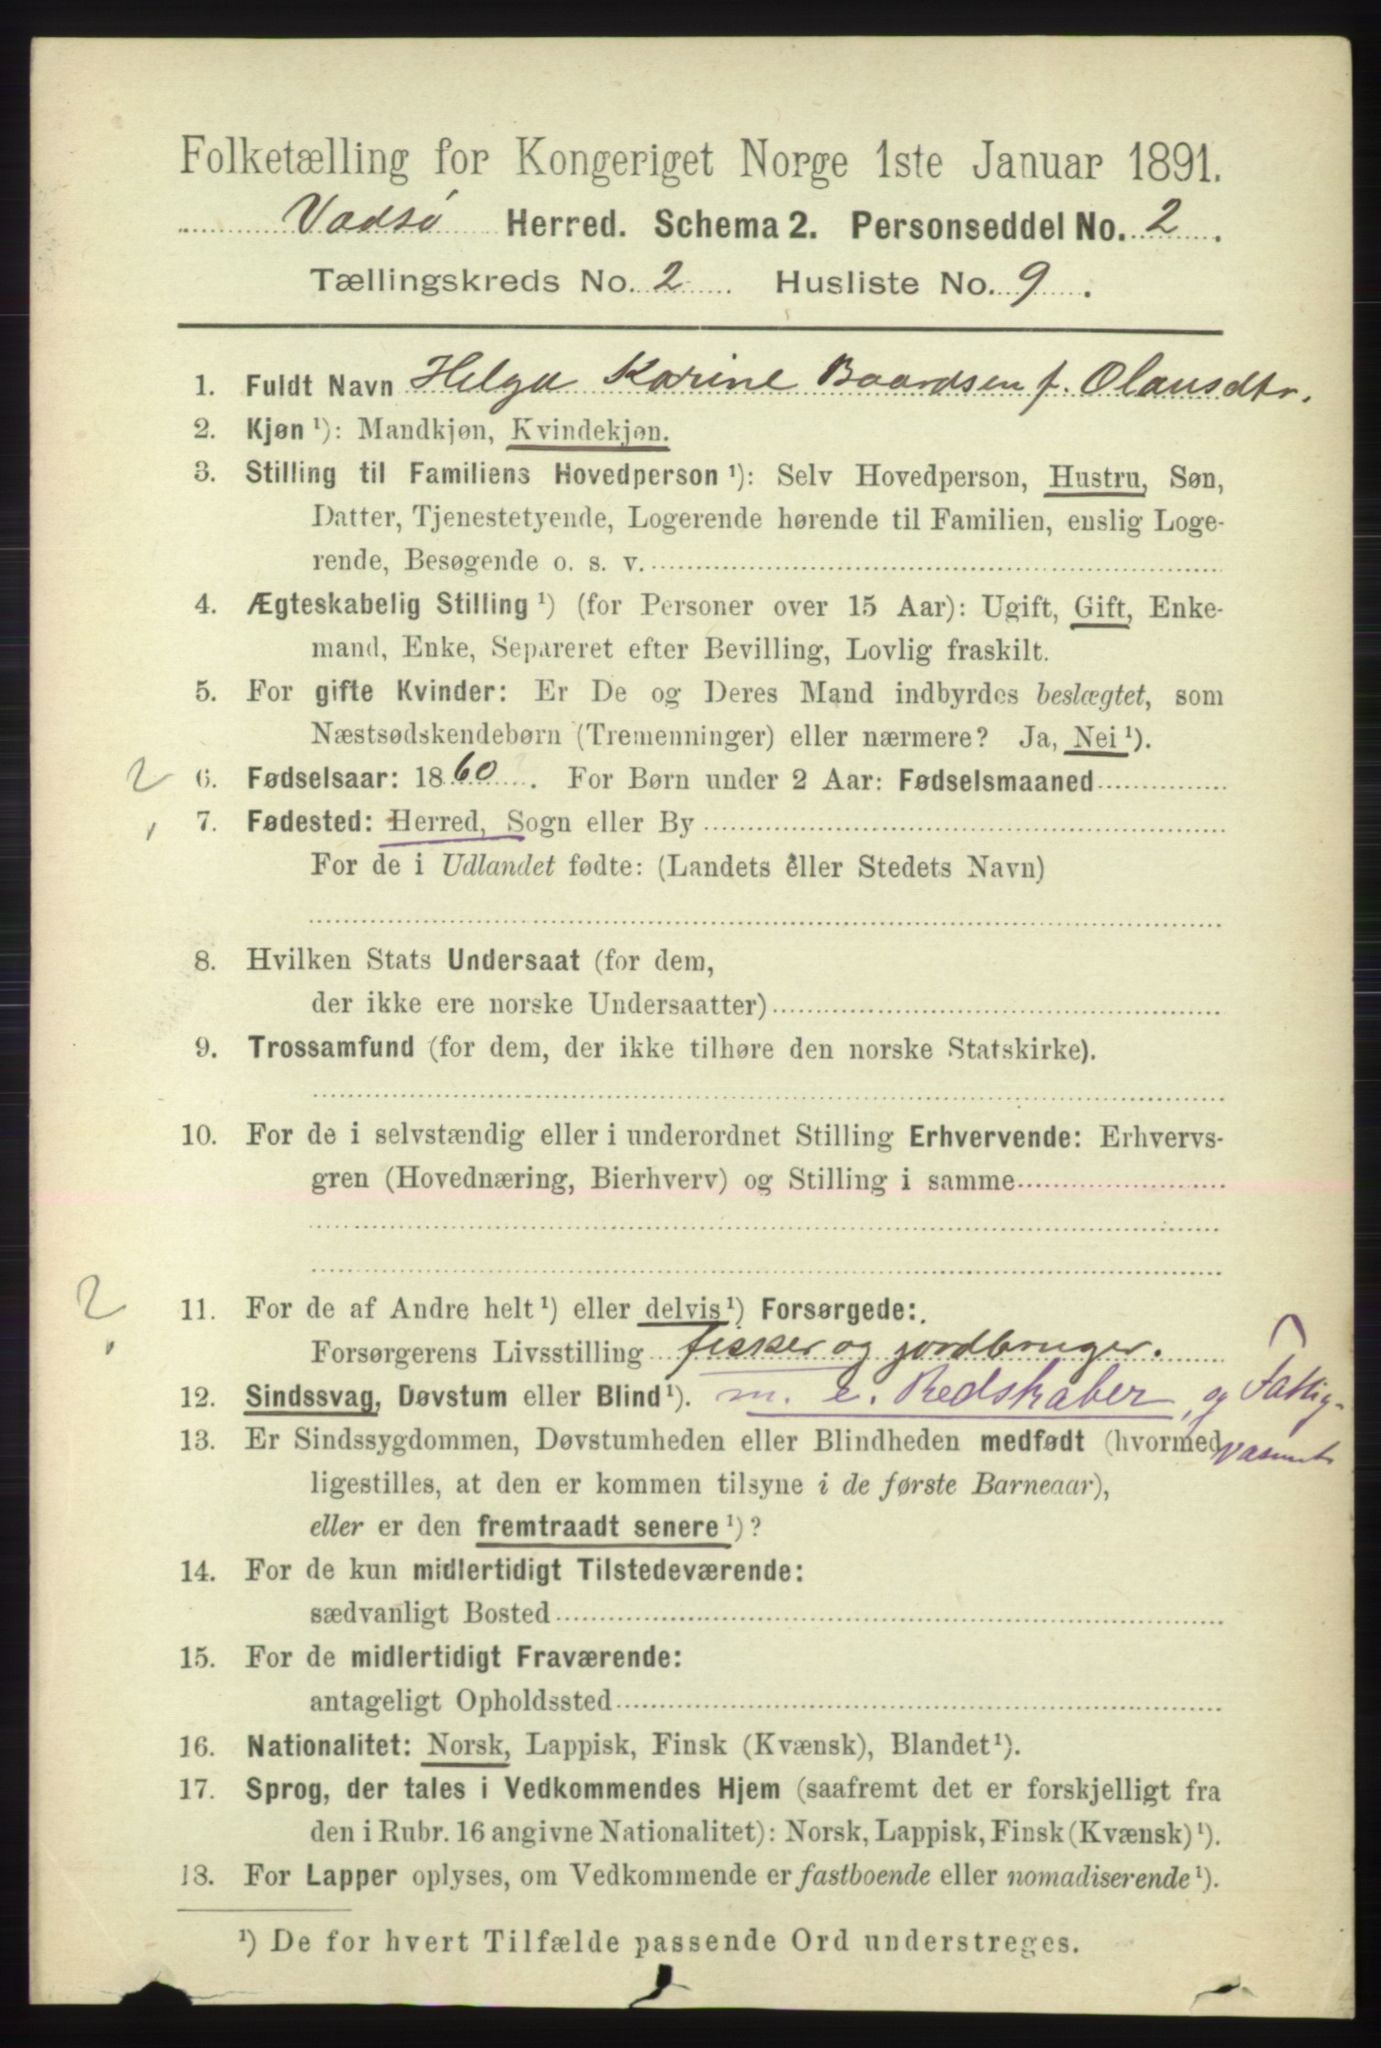 Folketælling for Kongeriget Norge 1ste Januar 1891.
Vadsø Herred. Schema 2. Personseddel No. 2.
Tællingskreds No. 2 Husliste No. 9.
1. Fuldt Navn Helga Karine Baardsen f. Olausdtr.
2. Kjøn ¹): Mandkjøn, Kvindekjøn.
3. Stilling til Familiens Hovedperson ¹): Selv Hovedperson, Hustru, Søn,
Datter, Tjenestetyende, Logerende hørende til Familien, enslig Loge-
rende, Besøgende o. s. v.
4. Ægteskabelig Stilling ¹) (for Personer over 15 Aar): Ugift, Gift, Enke-
mand, Enke, Separeret efter Bevilling, Lovlig fraskilt.
5. For gifte Kvinder: Er De og Deres Mand indbyrdes beslægtet, som
Næstsødskendebørn (Tremenninger) eller nærmere? Ja, Nei ¹).
2 6. Fødselsaar: 1860. For Børn under 2 Aar: Fødselsmaaned
7. Fødested: Herred, Sogn eller By
For de i Udlandet fødte: (Landets eller Stedets Navn)
8. Hvilken Stats Undersaat (for dem,
der ikke ere norske Undersaatter)
9. Trossamfund (for dem, der ikke tilhøre den norske Statskirke).
10. For de i selvstændig eller i underordnet Stilling Erhvervende: Erhvervs-
gren (Hovednæring, Bierhverv) og Stilling i samme
2 11. For de af Andre helt ¹) eller delvis ¹) Forsørgede:
Forsørgerens Livsstilling fisker og jordbruger.
12. Sindssvag, Døvstum eller Blind ¹). m. e. Redskaber, og Fattig-
13. Er Sindssygdommen, Døvstumheden eller Blindheden medfødt (hvormed
ligestilles, at den er kommen tilsyne i de første Barneaar),
eller er den fremtraadt senere ¹)?
14. For de kun midlertidigt Tilstedeværende:
sædvanligt Bosted
15. For de midlertidigt Fraværende:
antageligt Opholdssted
16. Nationalitet: Norsk, Lappisk, Finsk (Kvænsk), Blandet ¹).
17. Sprog, der tales i Vedkommendes Hjem (saafremt det er forskjelligt fra
den i Rubr. 16 angivne Nationalitet): Norsk, Lappisk, Finsk (Kvænsk) ¹).
18. For Lapper oplyses, om Vedkommende er fastboende eller nomadiserende ¹).
¹) De for hvert Tilfælde passende Ord understreges.